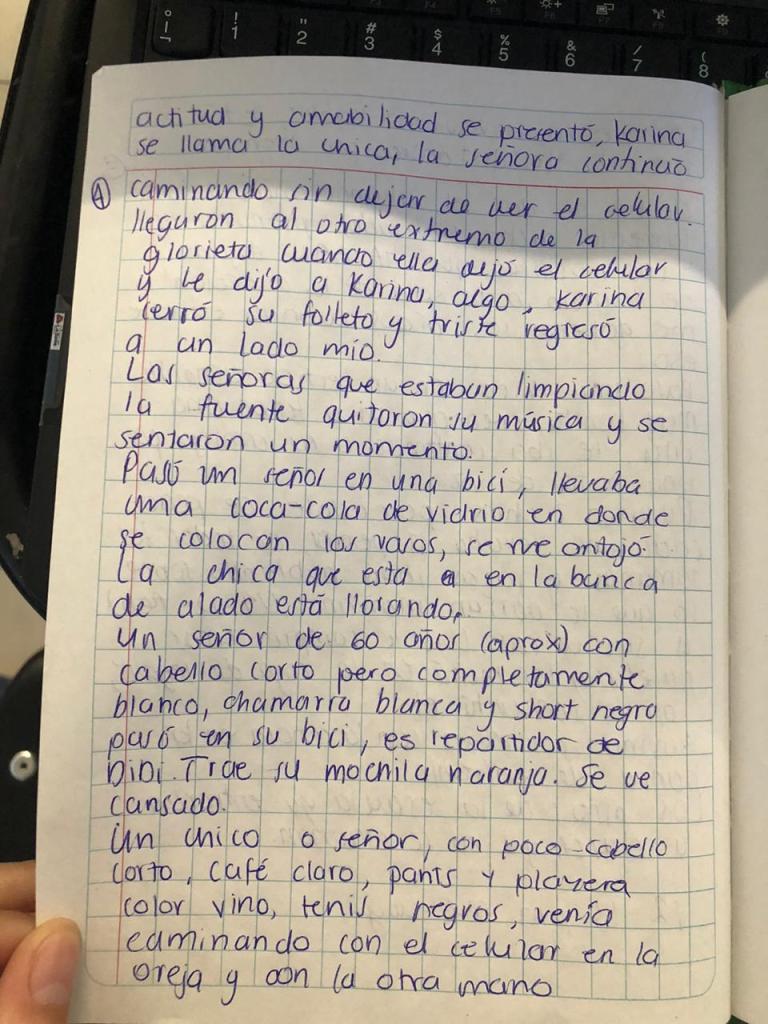 actitud y amabilidad se presentó, Karina
se llama la chica, la señora continuó
A caminando sin dejar de ver el celular.
llegaron al otro extremo de la
glorieta cuando ella dejó el celular
y le dijo a Karina, algo, Karina
cerró su folleto y triste regresó
a un lado mío.
Las señoras que estaban limpiando
la fuente quitaron su música y se
sentaron un momento.
Pasó um señor en una bici, llevaba
uma coca-cola de vidrio en donde
se colocan los vasos, se me antojó.
La chica que esta en la banca
de alado está llorando.
Un señor de 60 años (aprox) con
cabello corto pero completamente
blanco, chamarra blanca y short negro
pasó en su bici, es repartidor de
DiDi. Trae su mochila naranja. Se ve
cansado.
Un chico o señor, con poco cabello
corto, café claro, pants y playera
color vino, tenis negros, venía
caminando con el celular en la
oreja y con la otra mano
! 1
" 2
# 3
$ 4
% 5
& 6
/ 7
( 8